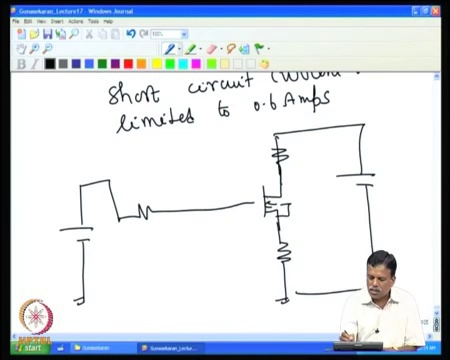 Gunasekaran_Lecture17 - Windows Journal
File Edit View Insert Actions Tools Help
100%
B I
Short circuit
limited to 0.6 Amps
NPTEL
start
Gunasekaran
Gunasekaran_Lectu...